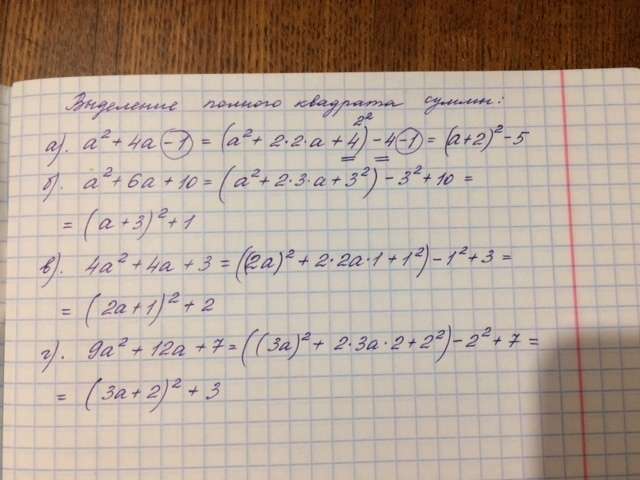 Выделение полного квадрата суммы:
а). a² + 4a - 1 = (a² + 2·2·a + 4) - 4 - 1 = (a+2)² - 5
2²
б). a² + 6a + 10 = (a² + 2·3·a + 3²) - 3² + 10 =
= (a + 3)² + 1
в). 4a² + 4a + 3 = ((2a)² + 2·2a·1 + 1²) - 1² + 3 =
= (2a+1)² + 2
г). 9a² + 12a + 7 = ((3a)² + 2·3a·2 + 2²) - 2² + 7 =
= (3a+2)² + 3